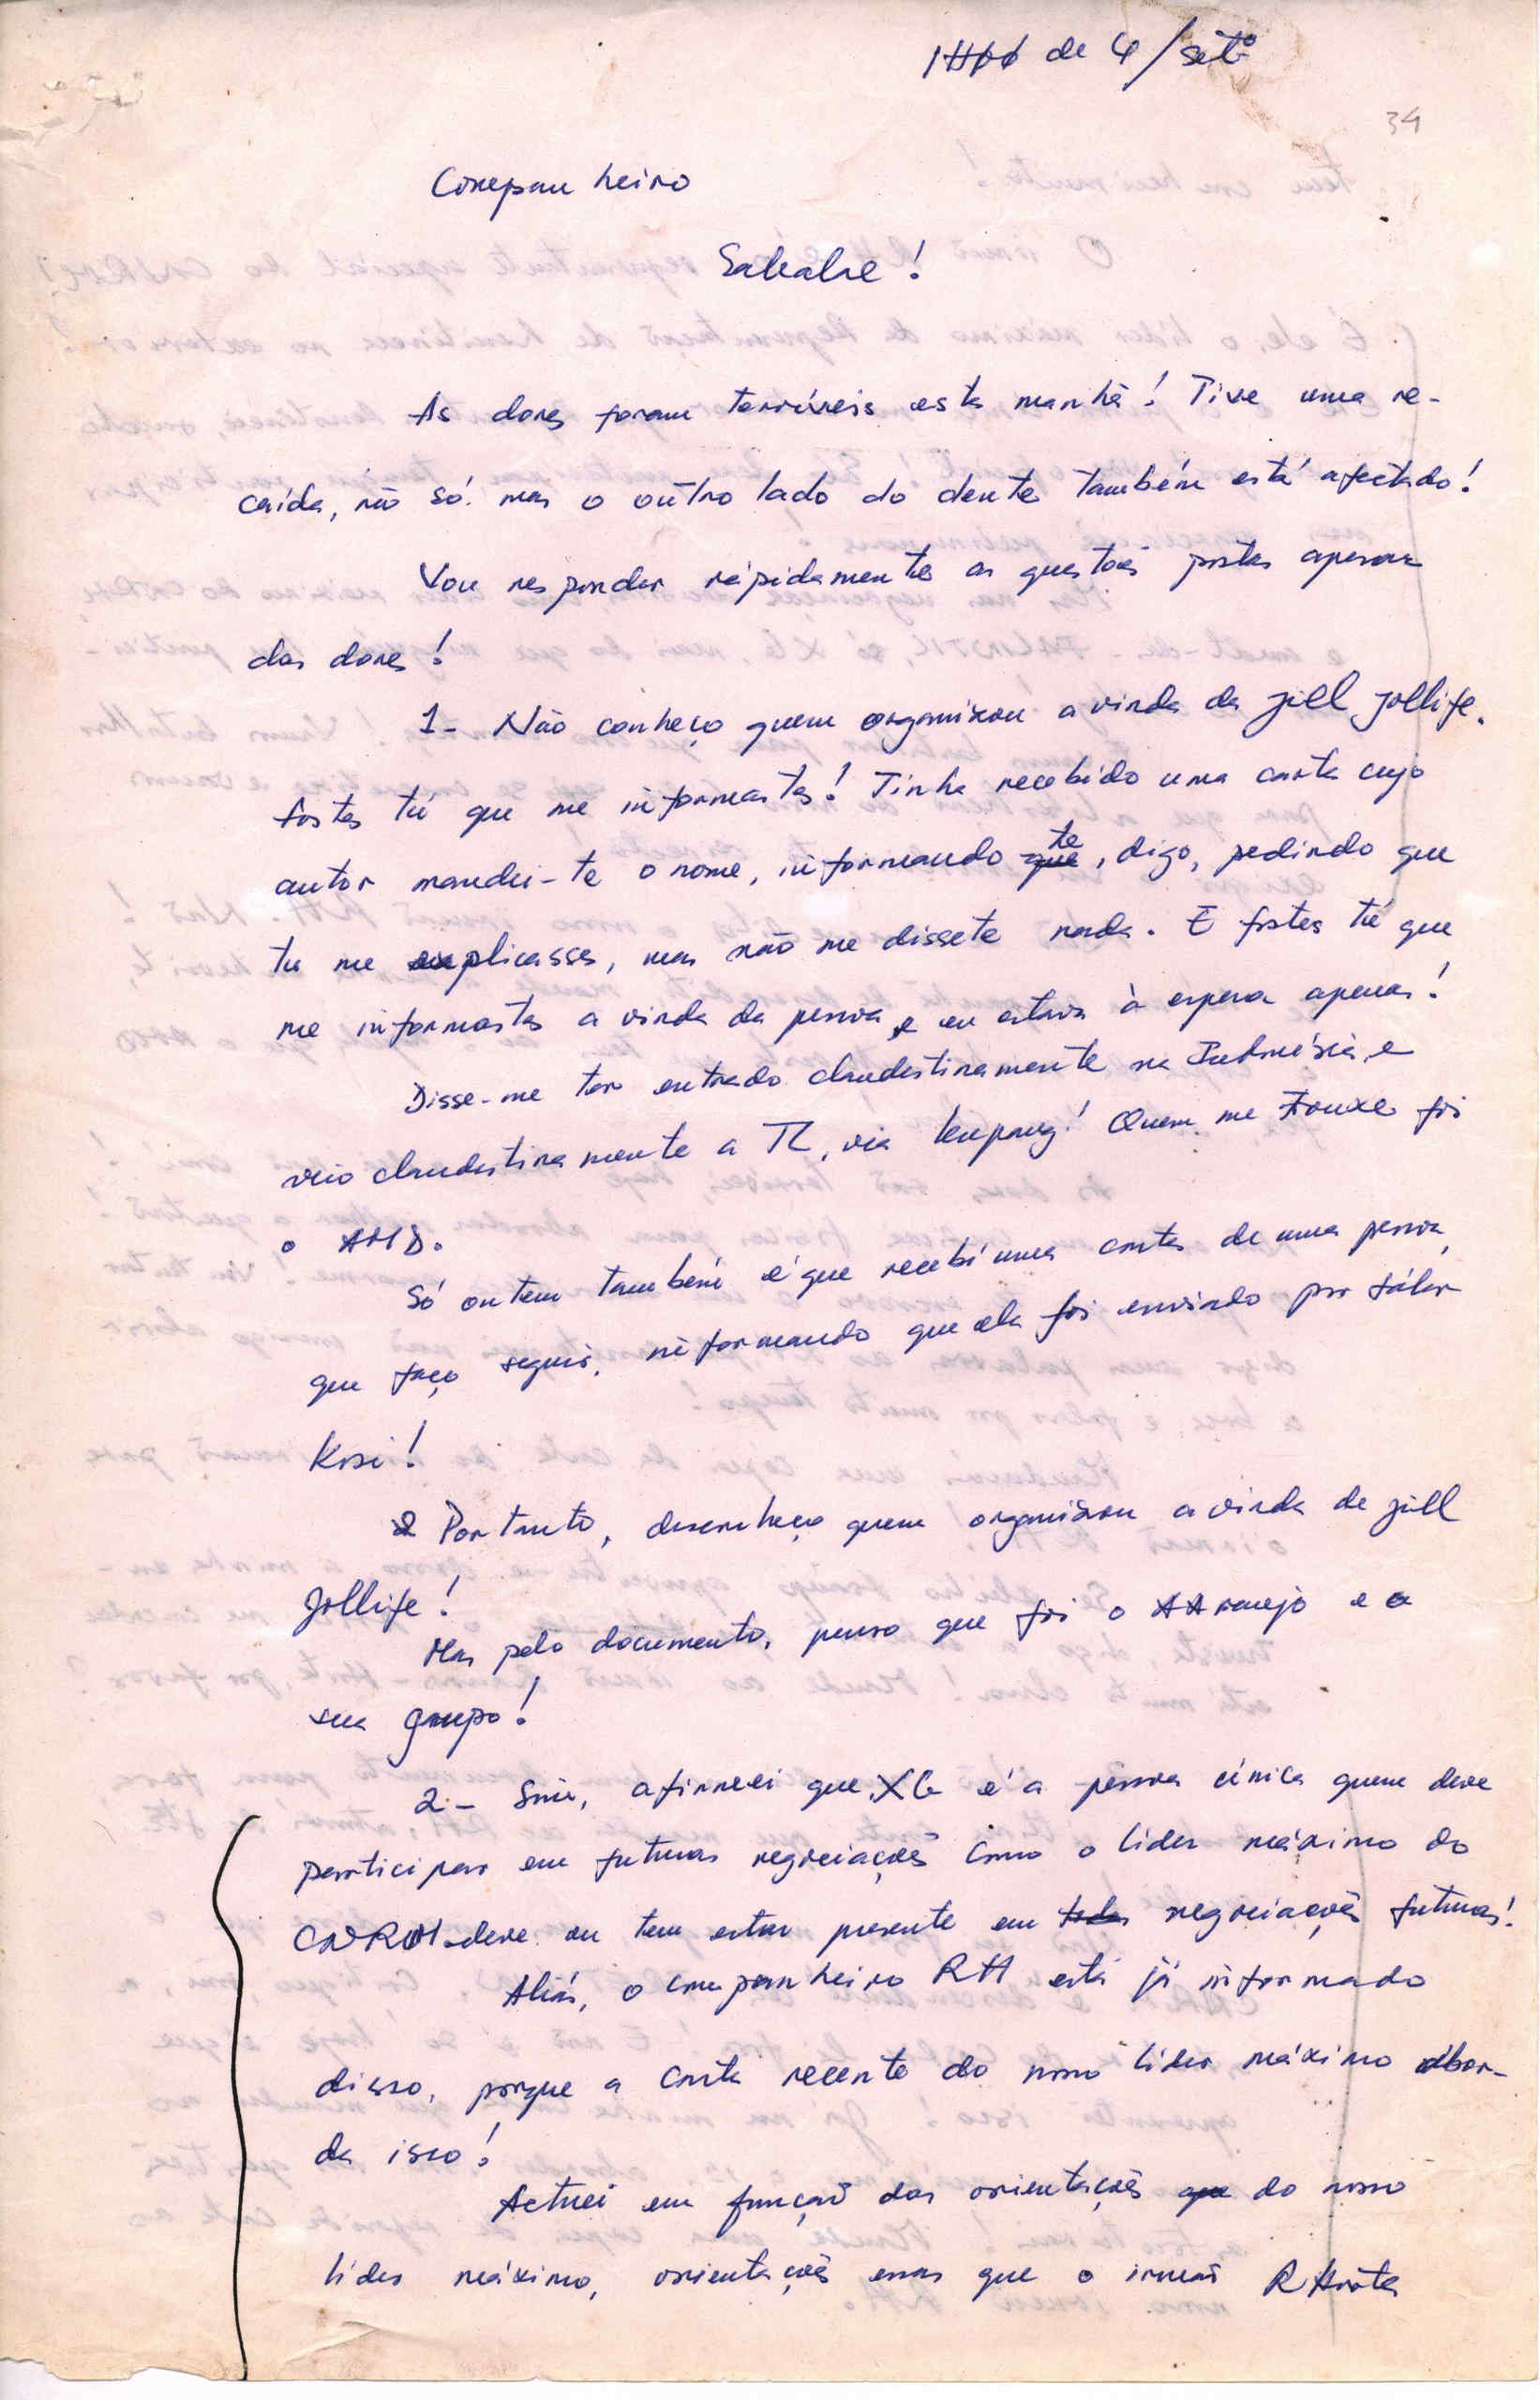 1HPO de 4/setº
34
Companheiro
Sabalae!
As dores foram terríveis esta manhã! Tive uma re-
caída, não só. mas o outro lado do dente também está afectado!
Vou responder rápidamente as questões postas apesar
das dores!
1- Não conheço quem organizou a vinda da Jill Jollife.
fostes tú que me informastes! Tinha recebido uma carta cujo
autor mandei-te o nome, informando te, digo, pedindo que
tu me explicasses, mas não me disseste nada. E fostes tú que
me informastes a vinda da pessoa, e eu estava à espera apenas!
Disse-me ter entrado clandestinamente na Indonésia, e
veio clandestinamente a TL, via Kupang! Quem me trouxe foi
o AMD.
Só ontem também é que recebi uma carta de uma pessoa,
que faço seguir, informando que ela foi enviado por
Kosi!
Portanto, desconheço quem organizou a vinda de Jill
Jollife!
Mas pelo documento, penso que foi o AAraujo e o
seu grupo!
2- Sim, afirmei que XG é a pessoa única quem deve
participar em futuras negociações como o líder máximo do
CNRM. deve ou tem estar presente em todas negociações futuras!
Aliás, o companheiro RH está já informado
disso, porque a carta recente do nosso líder máximo abor-
da isso!
Actuei em função das orientações que do nosso
líder máximo, orientações essas que o irmão RHorta